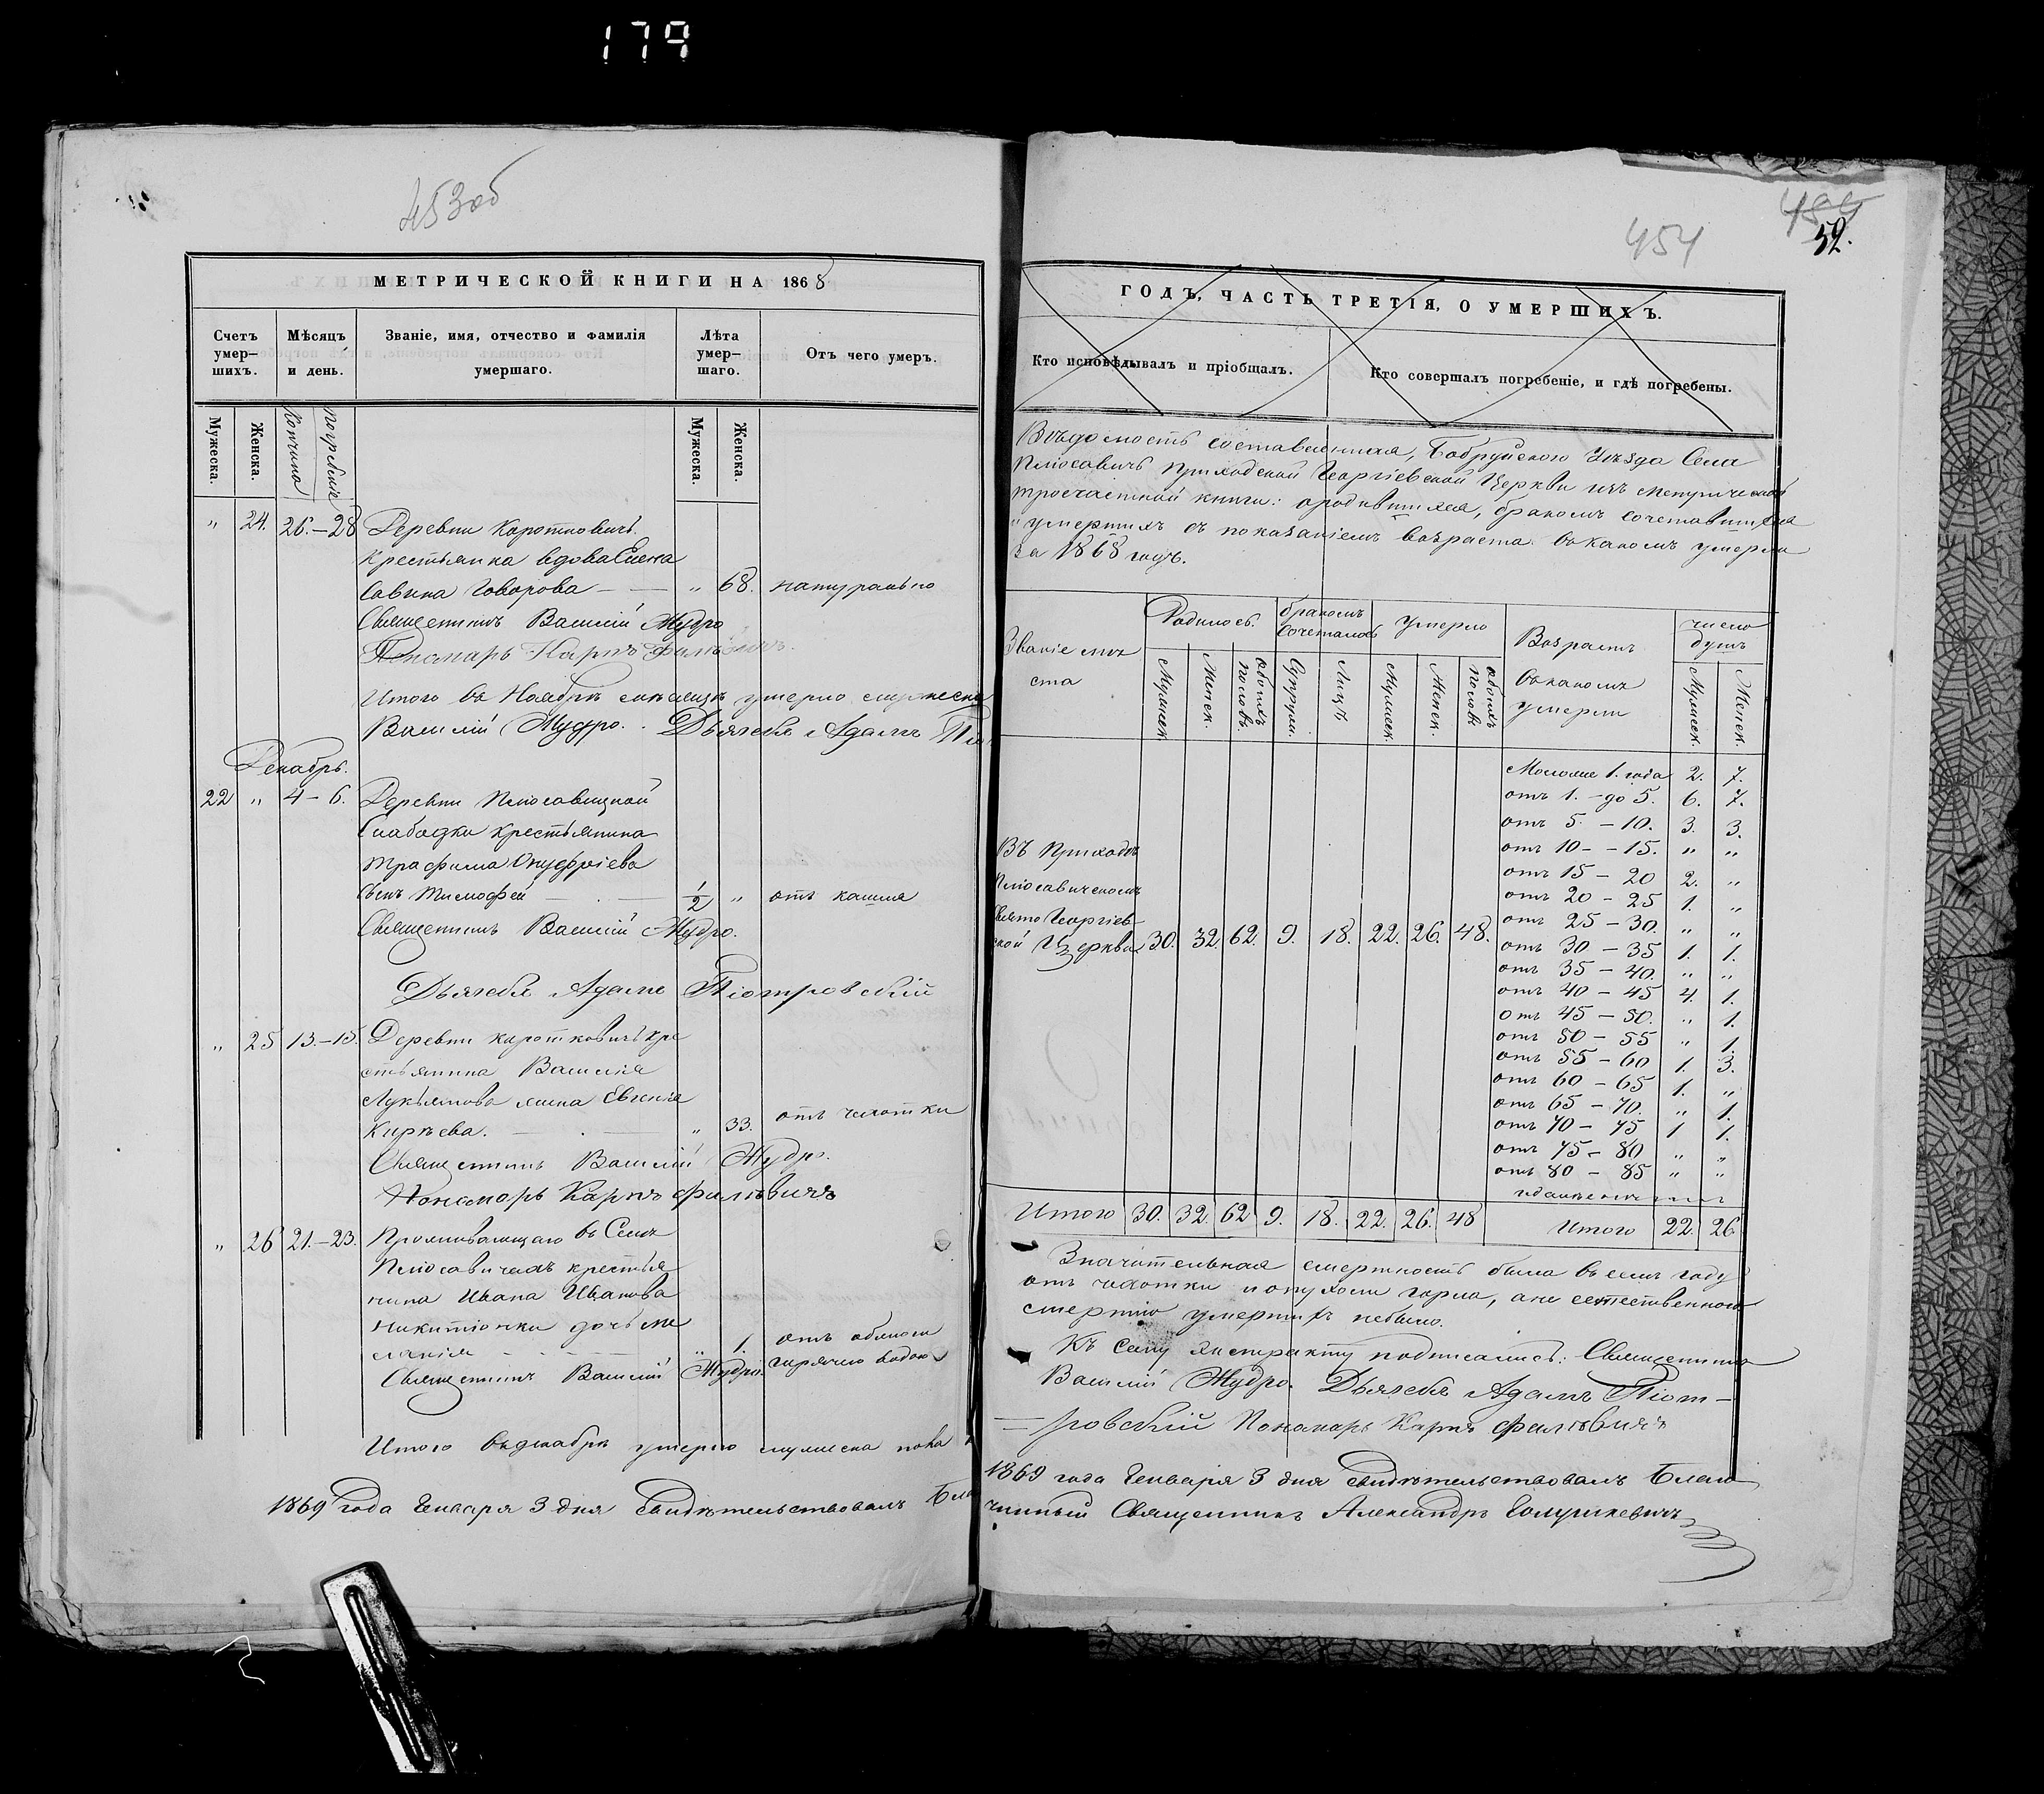 179
453об
МЕТРИЧЕСКОЙ КНИГИ НА 1868
Счетъ умер-шихъ.
Мѣсяцъ и день.
Званіе, имя, отчество и фамилія умершаго.
Лѣта умер-шаго.
Отъ чего умеръ.
Мужеска.
Женска.
Кончина
Погребенія
Мужеска.
Женска.
" 24. 26.-28 Деревни Коротковичъ
крестьянка вдова Елена
Савина Говорова — " 68. натурально
Священникъ Василій Мудро
Пономарь Карпъ Филѣвичъ.
Итого въ Ноябрѣ мѣсяцѣ умерло мужеска
Василій Мудро. Дьячекъ Адамъ Піо
Декабрь.
22 " 4-6. Деревни Плюсавицкой
Слабодки крестьянина
Трафима Онуфріева
сынъ Тимофей — 1/2 " отъ кашля
Священникъ Василій Мудро.
Дьячекъ Адамъ Піотровскій
" 25 13.-15. Деревни Коротковичъ кре
стьянина Василія
Лукьянова жена Евгенія
Кирѣева. — " 33. отъ чахотки
Священникъ Василій Мудро.
Пономарь Карпъ Филѣвичъ
" 26 21.-23. Проживающаго въ Селѣ
Плюсавичахъ крестья
нина Ивана Иванова
Никитіонки дочь Ме
ланія — " 1. отъ обжога
Священникъ Василій Мудро. горячею водою
Итого въ декабрѣ умерло мужеска пола
1869 года Генваря 3 дня свидѣтельствовалъ Бла
454
454
52.
ГОДЪ, ЧАСТЬ ТРЕТІЯ, О УМЕРШИХЪ.
Кто исповѣдывалъ и пріобщалъ.
Кто совершалъ погребеніе, и гдѣ погребены.
Вѣдомость составленная, Бобруйскаго Уѣзда Села
Плюсавичъ приходской Георгіевской Церкви изъ метрической
троечастной книги: о родившихся, бракомъ сочетавшихся
и умершихъ съ показаніемъ возраста въ какомъ умерли
за 1868 годъ.
Званіе мѣ
ста
Родилось.
бракомъ сочеталось
Умерло
Возрастъ
въ какомъ
умерли
число душъ
Мужеск.
Женск.
обоихъ половъ.
Супруж.
Лицъ
Мужеск.
Женск.
обоихъ половъ
Мужеск.
Женск.
Моложе 1. года 2. 7.
отъ 1. - до 5. 6. 7.
отъ 5 - 10. 3. 3.
отъ 10 - 15. " "
отъ 15 - 20 2. "
отъ 20 - 25 1. "
отъ 25 - 30. " "
отъ 30 - 35 1. 1.
отъ 35 - 40. " "
отъ 40 - 45 4. 1.
отъ 45 - 50. " 1.
отъ 50 - 55 " 1.
отъ 55 - 60 1. 3.
отъ 60 - 65 1. "
отъ 65 - 70. " 1.
отъ 70 - 75 1 1.
отъ 75 - 80 " "
отъ 80 - 85 " "
Въ Приходѣ
Плюсавическомъ
Свято Георгіев-
ской Церкви 30. 32 62. 9. 18. 22. 26. 48.
Итого 30. 32. 62 9. 18. 22. 26. 48 Итого 22. 26
Значительная смертность была въ семъ году
отъ чахотки и опухоли горла, а не естественною
смертію умершихъ небыло.
Къ сему экстракту подписались: Священникъ
Василій Мудро. Дьячекъ Адамъ Піот-
ровскій Пономарь Карпъ Филѣвичъ
1869 года Генваря 3 дня свидѣтельствовалъ Благо
чинный Священникъ Александръ Голушкевичъ